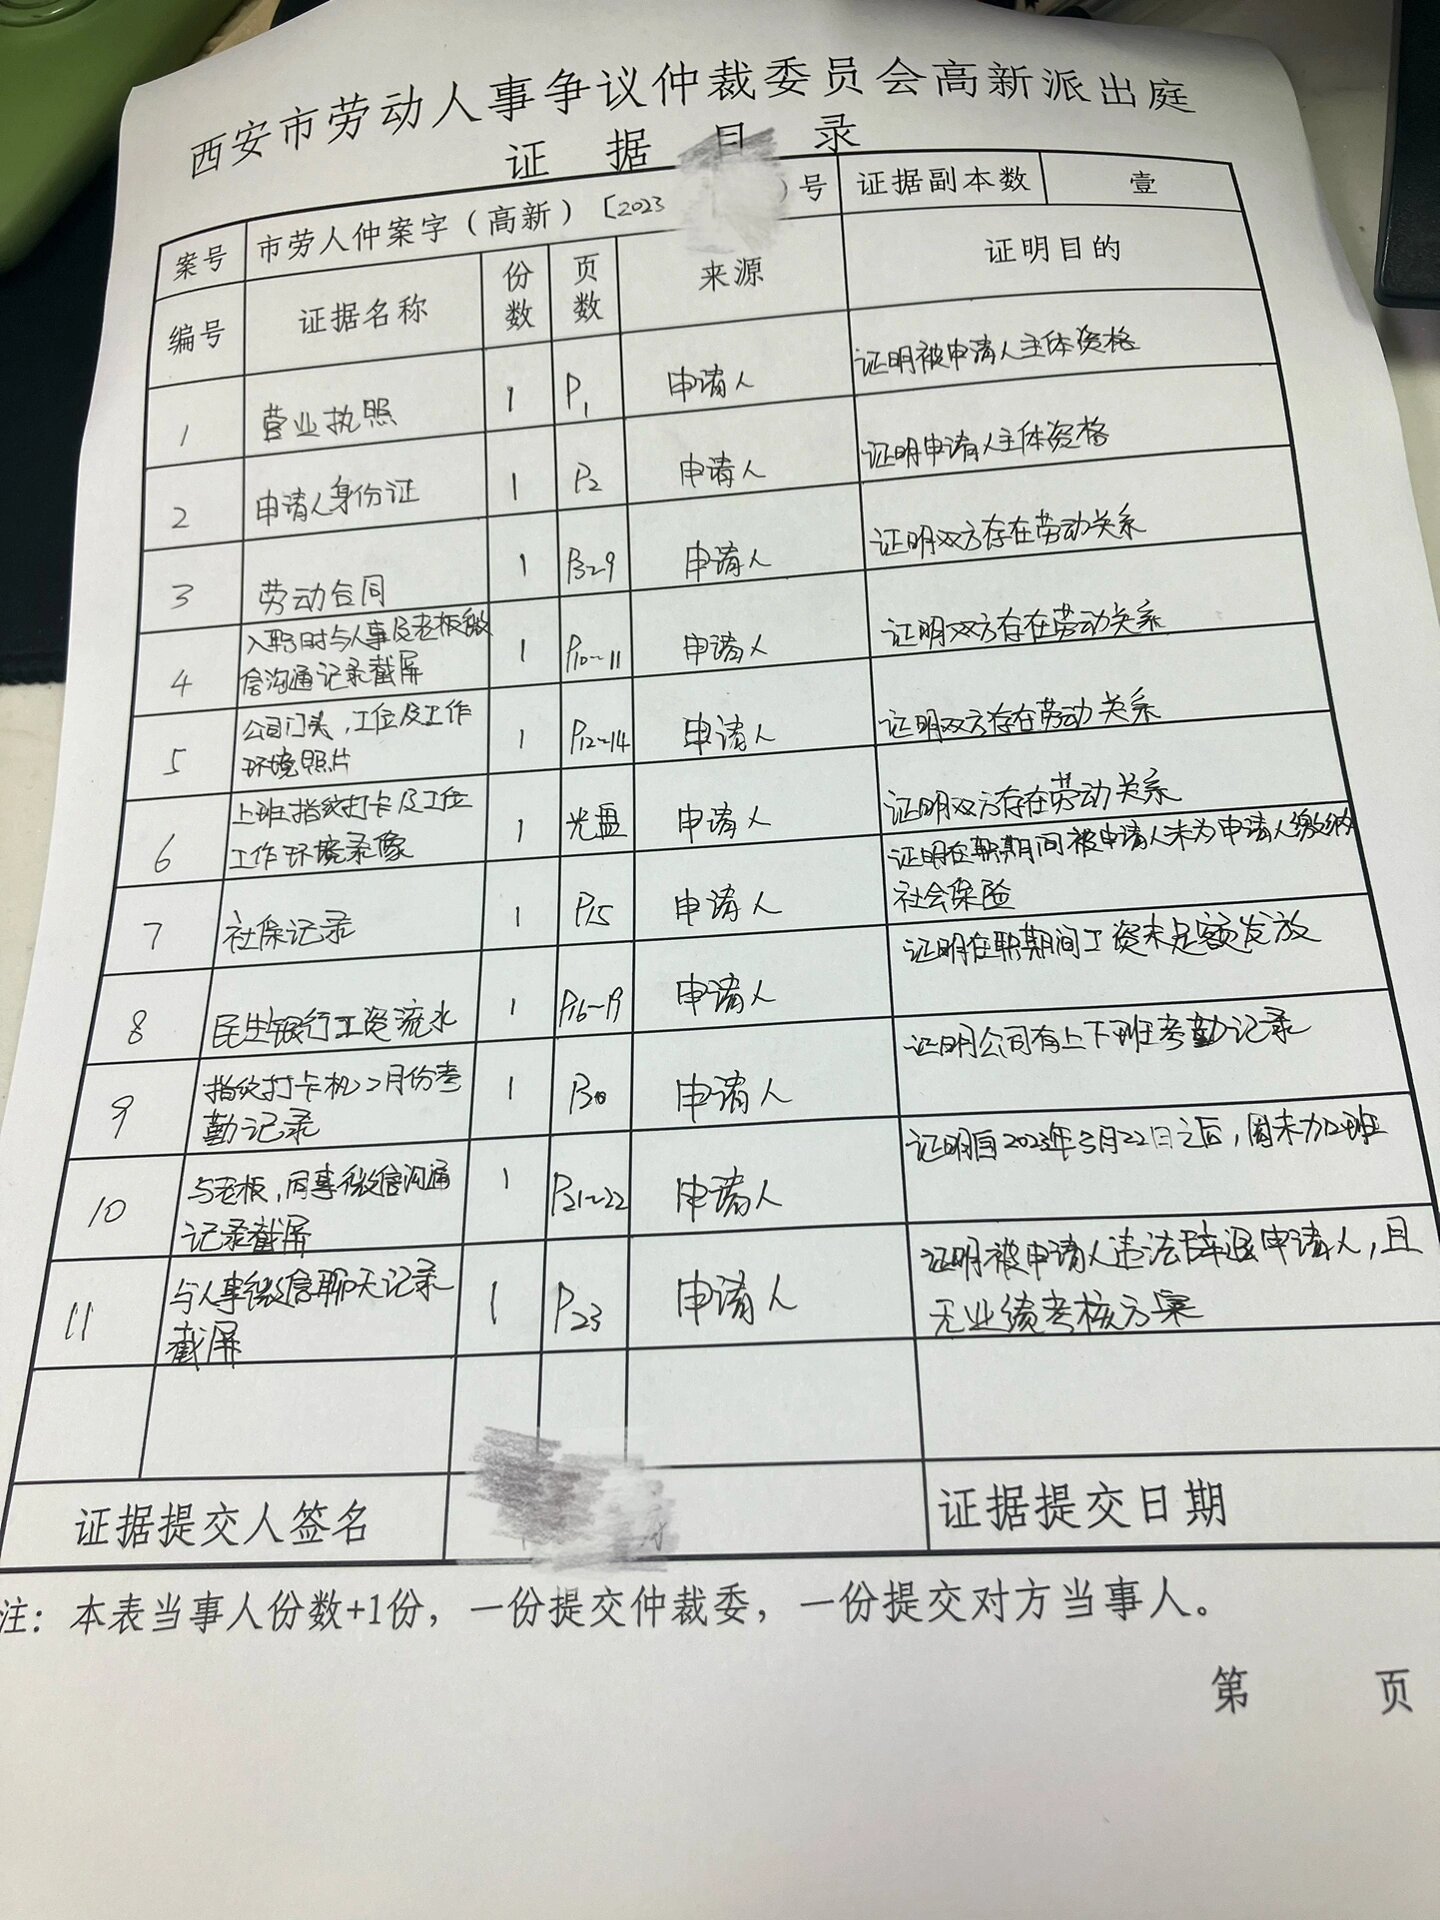 西安市劳动人事争议仲裁委员会高新派出庭
证 据 目 录
案号 市劳人仲案字(高新)[2023 )号 证据副本数 壹
编号 证据名称 份数 页数 来源 证明目的
1 营业执照 1 P1 申请人 证明被申请人主体资格
2 申请人身份证 1 P2 申请人 证明申请人主体资格
3 劳动合同 1 P3~9 申请人 证明双方存在劳动关系
4 入职时与人事及老板微
信沟通记录截屏 1 P10~11 申请人 证明双方存在劳动关系
5 公司门头,工位及工作
环境照片 1 P12~14 申请人 证明双方存在劳动关系
6 上班指纹打卡及工位
工作环境录像 1 光盘 申请人 证明双方存在劳动关系
7 社保记录 1 P15 申请人 证明在职期间被申请人未为申请人缴纳
社会保险
8 民生银行工资流水 1 P16~19 申请人 证明在职期间工资未足额发放
9 指纹打卡机2月份考
勤记录 1 P20 申请人 证明公司有上下班考勤记录
10 与老板,同事微信沟通
记录截屏 1 P21~22 申请人 证明自2023年3月22日之后,周末加班
11 与人事微信聊天记录
截屏 1 P23 申请人 证明被申请人违法辞退申请人,且
无业绩考核方案
证据提交人签名 证据提交日期
注:本表当事人份数+1份,一份提交仲裁委,一份提交对方当事人。
第 页